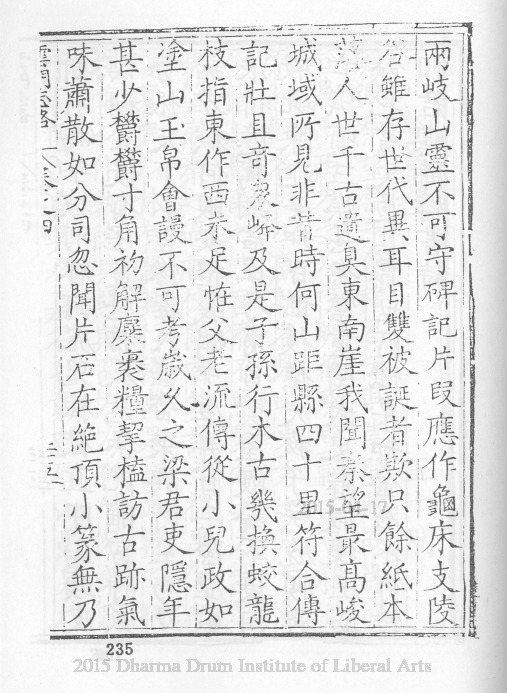 兩岐山靈不可守碑記片段應作龜床支陵
谷雖存世代異耳目雙被誕者欺只餘紙本
人世千古遺臭東南崖我聞秦望最高峻
城域所見非昔時何山距縣四十里符合傳
記壯且奇衆峰及是子孫行木古幾換蛟龍
枝指東作西未足怪父老流傳從小兒政如
塗山玉帛會謾不可考歲久之梁君吏隱年
甚少欝欝寸角初解麋裹糧挈榼訪古跡氣
味蕭散如分司忽聞片石在絶頂小篆無乃
雲門志略 卷之四
235
2015 Dharma Drum Institute of Liberal Arts